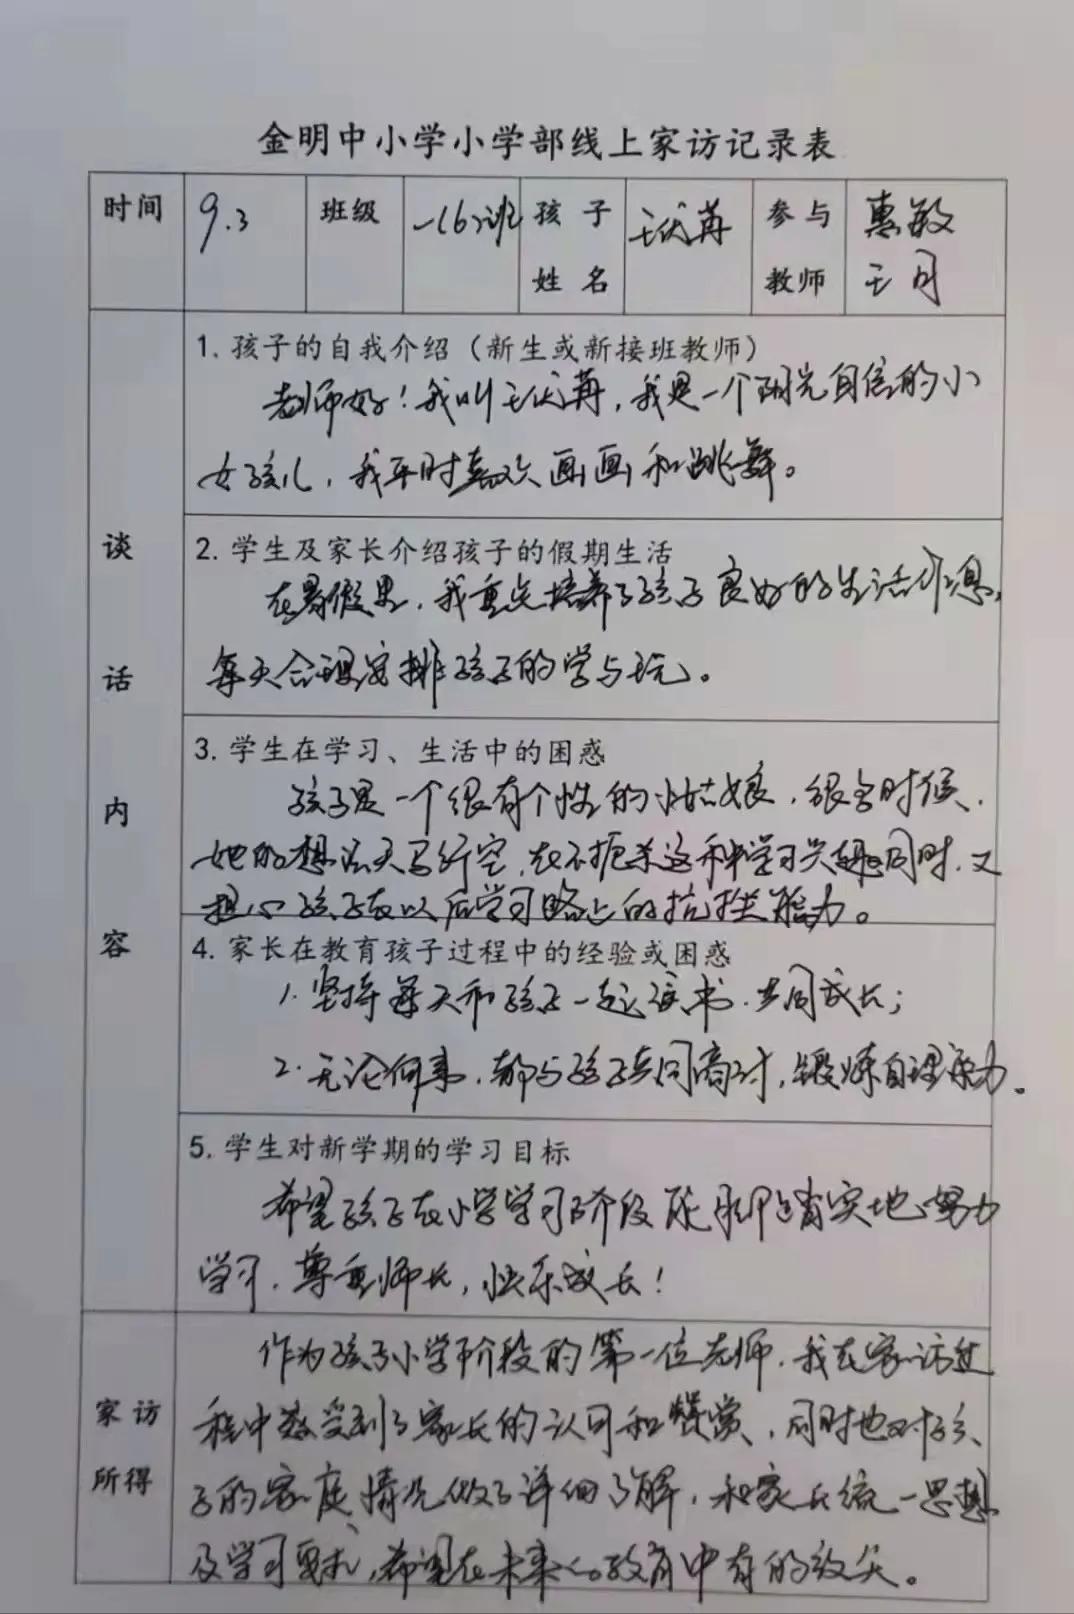 金明中小学小学部线上家访记录表
时间 9.3 班级 一(6)班 孩子姓名 王 苒 参与教师 惠敏 王月
谈话内容
1. 孩子的自我介绍（新生或新接班教师）
老师好！我叫王 苒，我是一个阳光自信的小
女孩儿，我平时喜欢画画和跳舞。
2. 学生及家长介绍孩子的假期生活
在暑假里，我重点培养了孩子良好的生活作息，
每天合理安排孩子的学与玩。
3. 学生在学习、生活中的困惑
孩子是一个很有个性的小姑娘，很多时候，
她的想法天马行空，在不扼杀这种学习兴趣同时，又
担心孩子在以后学习路上的抗挫能力。
4. 家长在教育孩子过程中的经验或困惑
1. 坚持每天和孩子一起读书，共同成长；
2. 无论何事，都与孩子共同商讨，锻炼自理能力。
5. 学生对新学期的学习目标
希望孩子在小学学习阶段能脚踏实地、努力
学习，尊重师长，快乐成长！
家访所得
作为孩子小学阶段的第一位老师，我在家访过
程中感受到了家长的认可和赞赏，同时也对孩
子的家庭情况做了详细了解，和家长统一思想
及学习要求，希望在未来的教育中有的放矢。